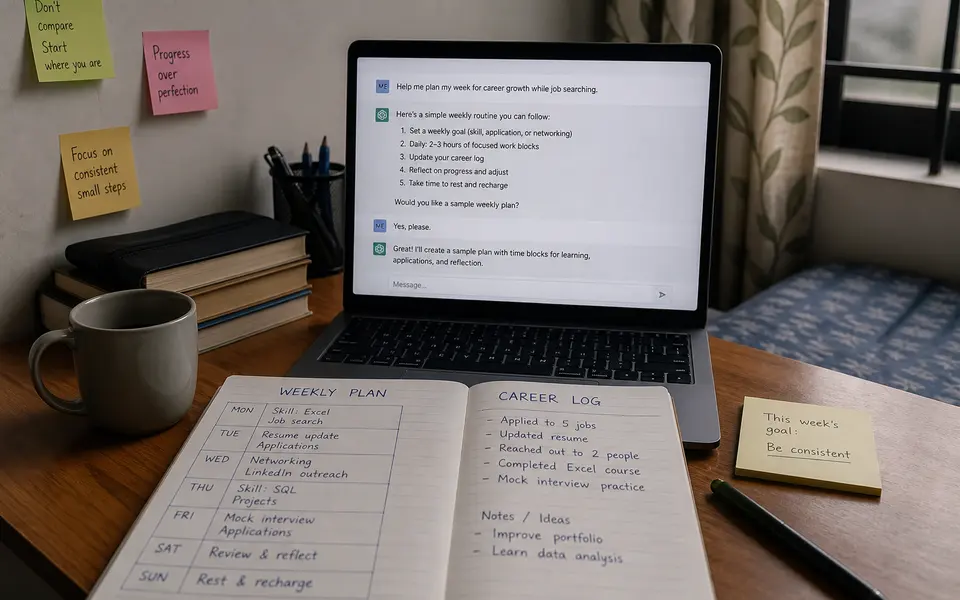 Don't
compare
Start
where you are
Progress
over
perfection
Focus on
consistent
small steps
ME
Help me plan my week for career growth while job searching.
Here's a simple weekly routine you can follow:
1. Set a weekly goal (skill, application, or networking)
2. Daily: 2–3 hours of focused work blocks
3. Update your career log
4. Reflect on progress and adjust
5. Take time to rest and recharge
Would you like a sample weekly plan?
ME
Yes, please.
Great! I'll create a sample plan with time blocks for learning,
applications, and reflection.
Message...
WEEKLY PLAN
MON
Skill: Excel
Job search
TUE
Resume update
Applications
WED
Networking
LinkedIn outreach
THU
Skill: SQL
Projects
FRI
Mock interview
Applications
SAT
Review & reflect
SUN
Rest & recharge
CAREER LOG
- Applied to 5 jobs
- Updated resume
- Reached out to 2 people
- Completed Excel course
- Mock interview practice
Notes / Ideas
- Improve portfolio
- Learn data analysis
This week's
goal:
Be consistent